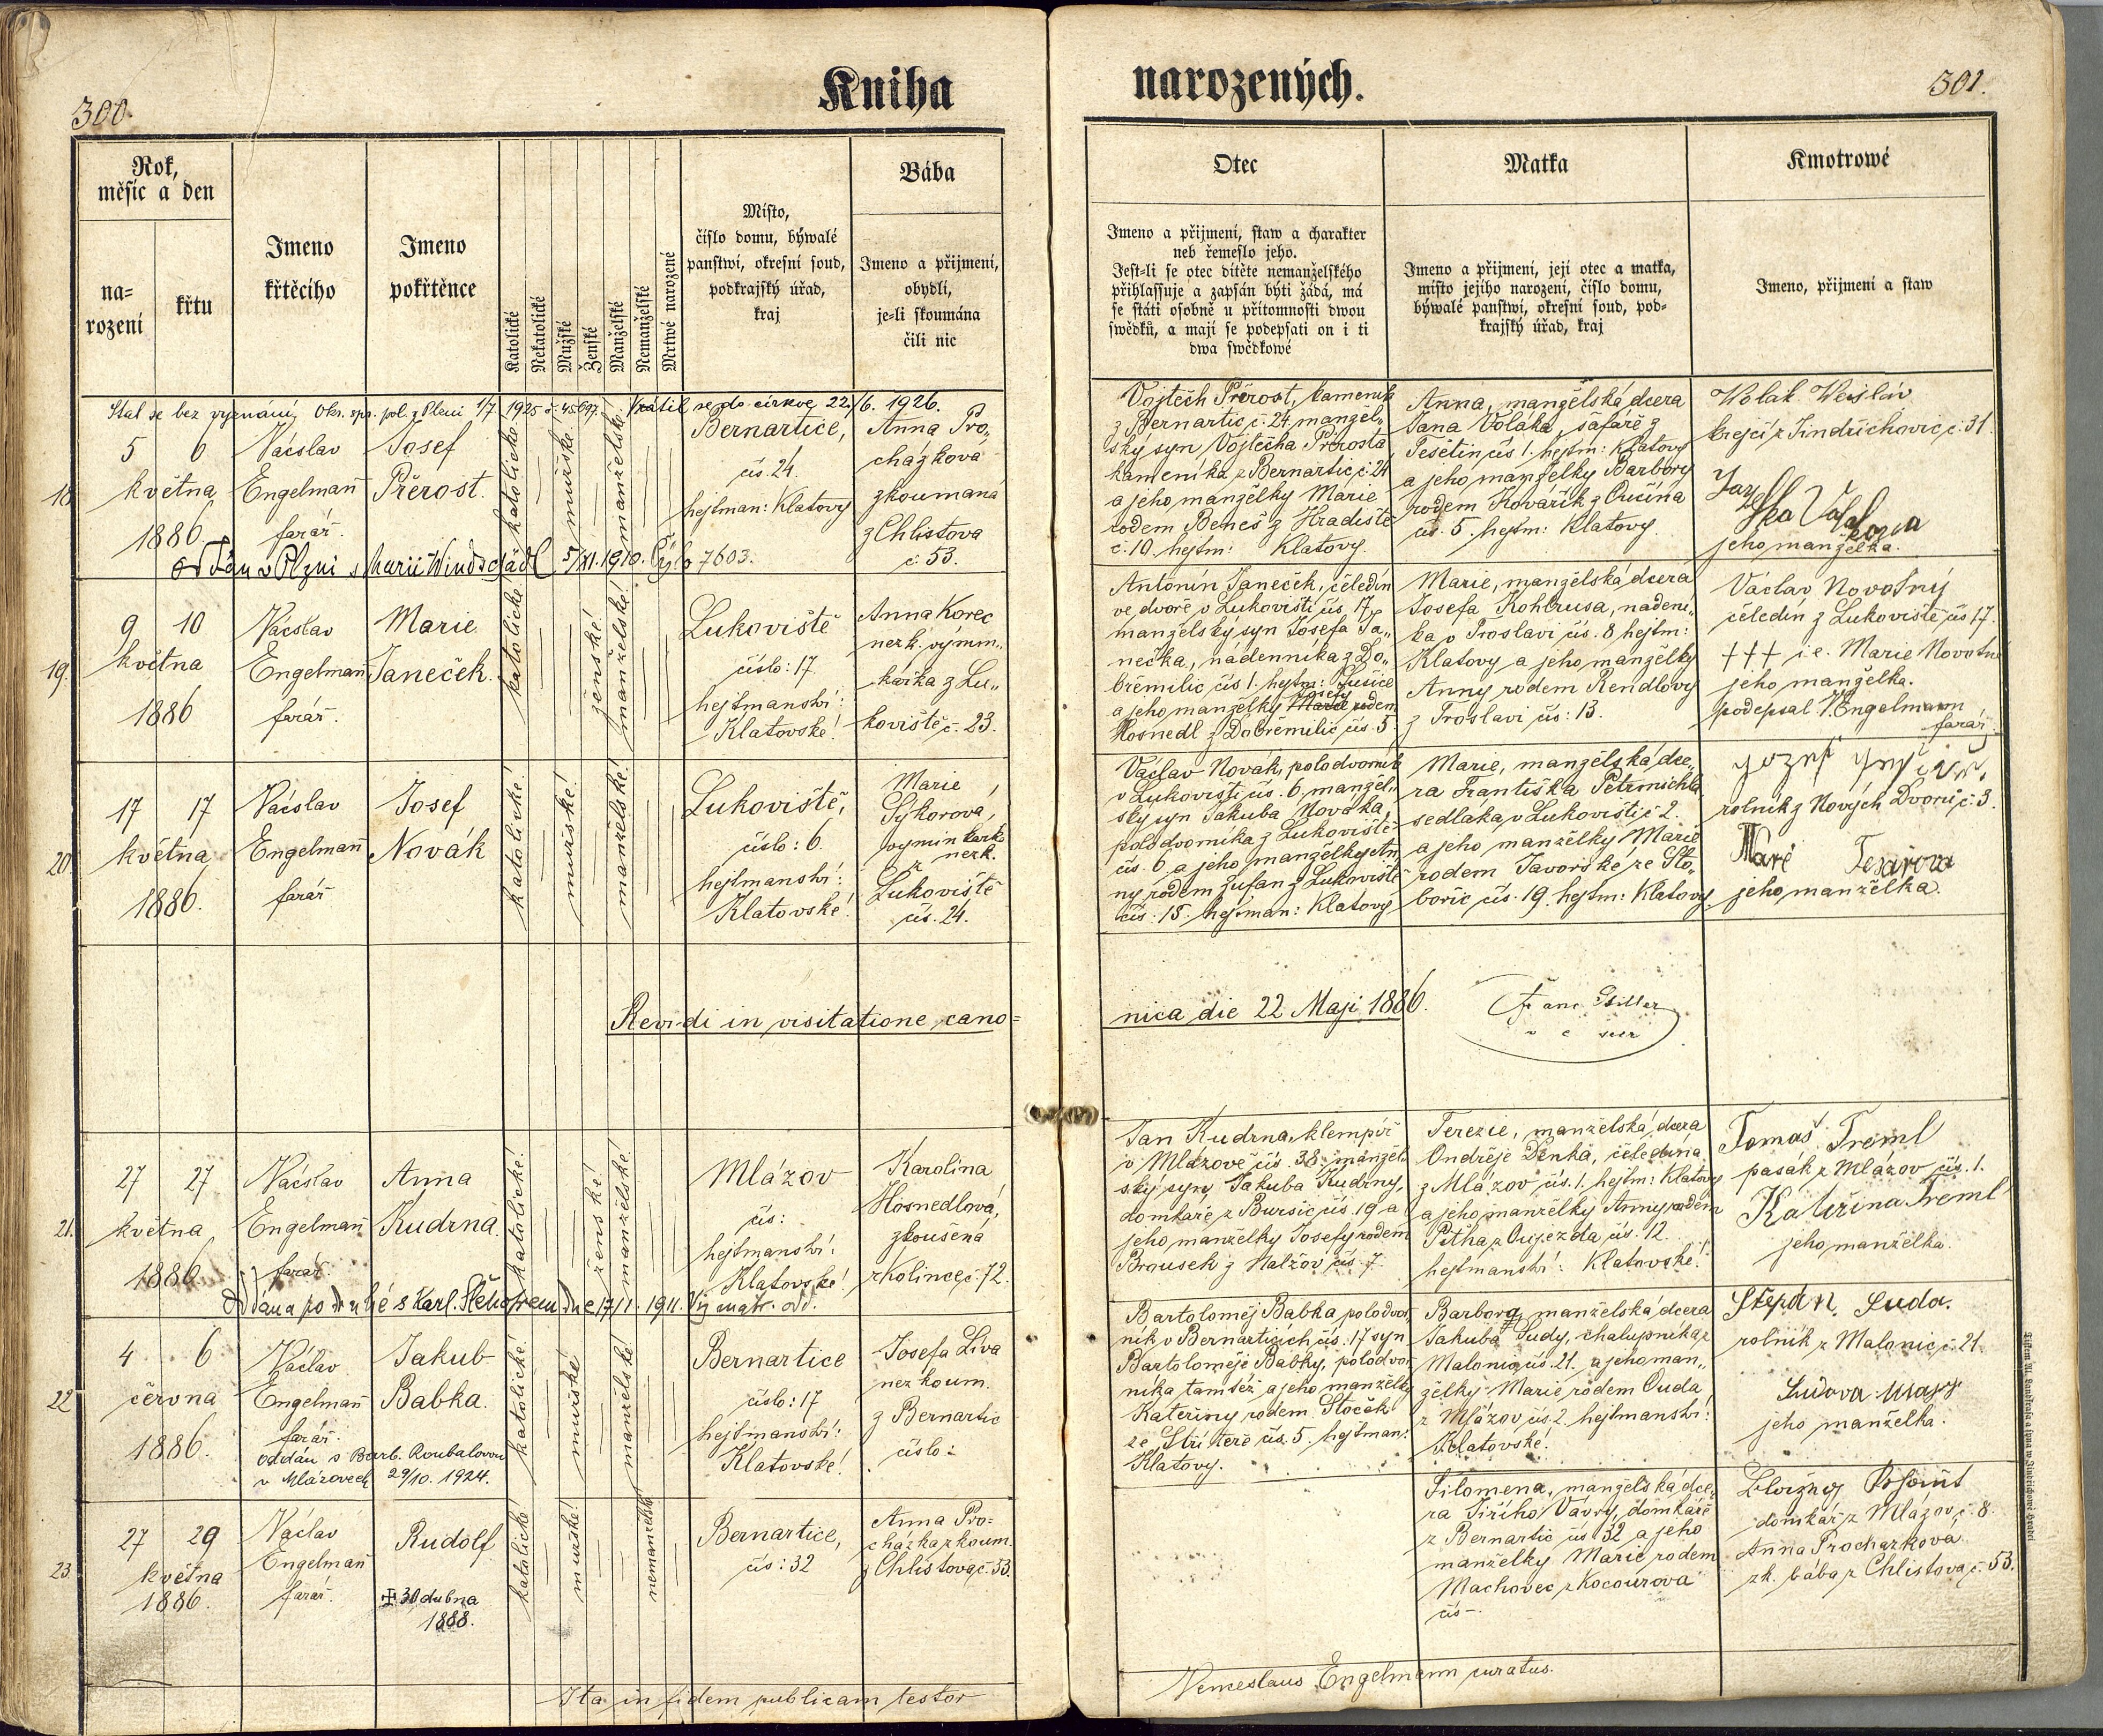 300.
Kniha
narozených.
301.
Rok,
měsíc a den
na=
rození
křtu
Jmeno
křtěcího
Jmeno
pokřtěnce
Katolické
Nekatolické
Mužské
Ženské
Manželské
Nemanželské
Mrtwě narozené
Místo,
číslo domu, býwalé
panstwí, okresní soud,
podkrajský úřad,
kraj
Bába
Jmeno a přijmení,
obydlí,
je-li skoumána
čili nic
Otec
Jmeno a přijmení, staw a charakter
neb řemeslo jeho.
Jest=li se otec dítěte nemanželského
přihlassuje a zapsán býti žádá, má
se státi osobně u přítomnosti dwou
swědků, a mají se podepsati on i ti
dwa swědkowé
Matka
Jmeno a přijmení, její otec a matka,
místo jejího narození, číslo domu,
býwalé panstwí, okresní soud, pod=
krajský úřad, kraj
Kmotrowé
Jmeno, přijmení a staw
Stal se bez vyznání, Okr. spr. pol. z Plzni 1/7. 1925 č. 45697. Vrátil se do církve 22./6. 1926.
18.
5 6
května
1886.
Václav
Engelmann
farář.
Josef
Přerost.
katolické
mužské
manželské
Bernartice,
čís. 24.
hejtman: Klatovy
Anna Pro„
cházkova
zkoumaná
z Chlistova
č. 53.
oddán v Plzni s Marií Windschädl 5/XI. 1910. Čýslo 7603.
Vojtěch Přerost, kameník
z Bernartic, č. 24, manžel„
ský syn Vojtěcha Přerosta,
kameníka z Bernartic č. 24
a jeho manželky Marie
rodem Beneš z Hradiště
č. 10. hejtm: Klatovy.
Anna, manželská dcera
Jana Voláka, šafáře z
Těšetin čís 1. hejtm: Klatovy
a jeho manželky Barbory
rodem Kovářík z Oučína
čís. 5. hejtm: Klatovy.
Wolák Weisláv
krejčí z Jindřichovic č. 31.
jeho manželka.
19.
9 10
května
1886
Václav
Engelmann
farář.
Marie
Janeček.
katolické
ženské!
manželské!
Lukoviště
číslo: 17
hejtmanství:
Klatovské!
Anna Korec
nezk. výmin„
kářka z Lu„
koviště č. 23.
Antonín Janeček, čeledín
ve dvoře v Lukovišti čís. 17,
manželský syn Josefa Ja„
nečka, nádenníka z Do„
břemilic čís 1. hejtm: Sušice
a jeho manželky Josefy rodem
Hosnedl z Dobřemilic čís. 5.
Marie, manželská dcera
Josefa Kohtrusa, nadení„
ka v Troslavi čís. 8 hejtm:
Klatovy a jeho manželky
Anny rodem Rendlovy
z Troslavi čís: 13.
Václav Novotný
čeledín z Lukoviště čís 17.
+++ i.e. Marie Novotná
jeho manželka.
podepsal V. Engelmann
farář
20.
17 17
května
1886.
Václav
Engelmann
farář
Josef
Novák
katolické!
mužské!
manželské!
Lukoviště,
číslo: 6.
hejtmanství:
Klatovské!
Marie
Sýkorová,
vyminkářka
nezk.
z
Lukoviště
čís. 24.
Václav Novák, polodvorník
v Lukovišti čís. 6, manžel„
ský syn Jakuba Nováka,
polodvorníka z Lukoviště
čís. 6 a jeho manželky An„
ny rodem Žufan z Lukoviště
čís. 15. hejtman: Klatovy
Marie, manželská dce„
ra Františka Petrmichla,
sedláka v Lukovišti č 2.
a jeho manželky Marie
rodem Javorské ze Sto„
bořic čís. 19. hejtm: Klatovy.
rolník z Nových Dvorů č. 3.
jeho manželka.
Revidi in visitatione cano=
nica die 22 Maji 1886.
21.
27 27
května
1886.
Václav
Engelmann
farář.
Anna
Kudrna.
katolické!
ženské!
manželské!
Mlázov
čís:
hejtmanství:
Klatovské!
Karolina
Hosnedlová,
zkoušená
z Kolince č. 72.
Jan Kudrna, klempíř
v Mlázově čís. 38. manžel„
ský syn Jakuba Kudrny,
domkáře z Buršic čís. 19 a
jeho manželky Josefy rodem
Brousek z Nalžov čís. 7.
Terezie, manželská dcera
Ondřeje Denka, čeledína
z Mlázov, čís. 1. hejtm: Klatovy
a jeho manželky Anny rodem
Pětka z Oujezda čís. 12.
hejtmanství: Klatovské!
Tomáš Treml
pasák z Mlázov čís. 1.
Kateřina Treml
jeho manželka.
22.
4 6
června
1886.
Václav
Engelmann
farář.
oddán s Barb. Roubalovou
v Mlázovech 29/10. 1924.
Jakub
Babka.
katolické!
mužské
manželské
Bernartice
číslo: 17
hejtmanství:
Klatovské!
Josefa Liva
nezkoum.
z Bernartic
číslo:
Bartoloměj Babka polodvor„
ník v Bernarticích čís. 17 syn
Bartoloměje Babky, polodvor„
níka tamtéž a jeho manželky
Kateřiny rodem Stoček
ze Střítěře čís. 5. hejtman:
Klatovy.
Barbora, manželská dcera
Jakuba Sudy, chalupníka z
Malonic čís. 21. a jeho man„
želky Marie rodem Ouda
z Mlázov čís. 2. hejtmanství:
Klatovské!
Štěpán Suda.
rolník z Malonic, č. 21.
jeho manželka.
23.
27 29
května
1886.
Václav
Engelmann
farář.
Rudolf
✠ 30 dubna
1888.
katolické!
mužské!
nemanželské
Bernartice,
čís: 32
Anna Pro=
cházka zkoum.
z Chlistova, č. 53.
Filomena, manželská dce„
ra Jiřího Vávry, domkáře
z Bernartic čís 32 a jeho
manželky Marie rodem
Machovec z Kocourova
čís -.
domkář z Mlázov, č. 8.
Anna Procházkova
zk. bába z Chlistova, č. 53.
Ita in fidem publicam testor
Venceslaus Engelmann curatus.